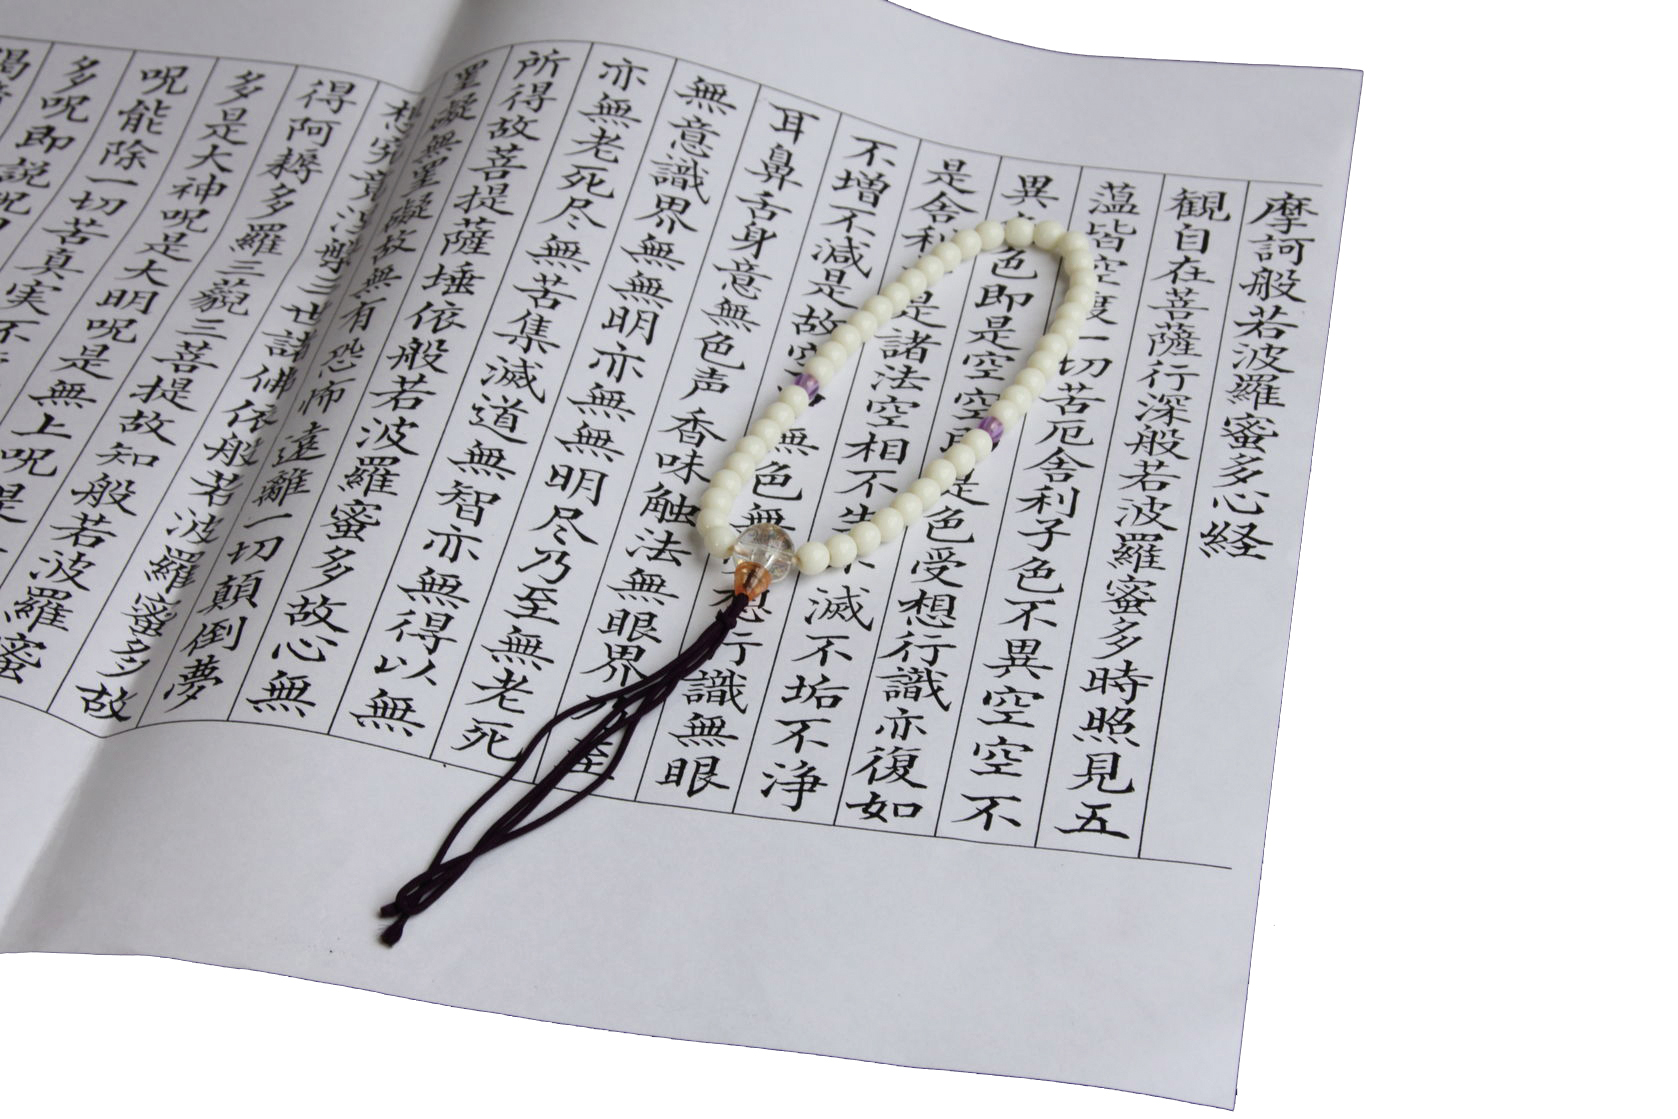 摩訶般若波羅蜜多心経
観自在菩薩行深般若波羅蜜多時照見五
薀皆空度一切苦厄舎利子色不異空空不
異色即是空空即是色受想行識亦復如
是舎利是諸法空相不生不滅不垢不浄
不増不減是故空無色無想行識無眼
耳鼻舌身意無色声香味触法無眼界乃至
無意識界無無明亦無無明尽乃至無老死
亦無老死尽無苦集滅道無智亦無得以無
所得故菩提薩埵依般若波羅蜜多故心無
罣礙無罣礙故無有恐怖遠離一切顛倒夢
想究竟涅槃三世諸佛依般若波羅蜜多故
得阿耨多羅三藐三菩提故知般若波羅蜜
多是大神呪是大明呪是無上呪是
呪能除一切苦真実不
多呪即説呪